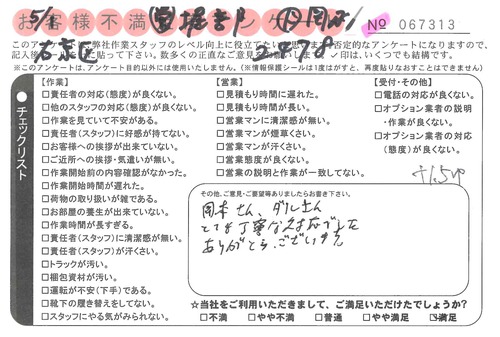 お客様不満
№ 067313
このアンケートは、弊社作業スタッフのレベル向上に役立てたい
否定的なアンケートになりますので、
記入後
貼って下さい。数多くの正直なご意見
印は、いくつでも結構です。
※このアンケートは、アンケート目的以外には使用いたしません。(※情報保護シールは1度はがすと、再度貼りなおすことはできません)
チェックリスト
【作業】
□責任者の対応(態度)が良くない。
□他のスタッフの対応(態度)が良くない。
□作業を見ていて不安がある。
□責任者(スタッフ)に好感が持てない。
□お客様への挨拶が出来ていない。
□ご近所への挨拶・気遣いが無い。
□作業開始前の内容確認がなかった。
□作業開始時間が遅れた。
□荷物の取り扱いが雑である。
□お部屋の養生が出来ていない。
□作業時間が長すぎる。
□責任者(スタッフ)に清潔感が無い。
□責任者(スタッフ)が汗くさい。
□トラックが汚い。
□梱包資材が汚い。
□運転が不安(下手)である。
□靴下の履き替えをしてない。
□スタッフにやる気がみられない。
【営業】
□見積もり時間に遅れた。
□見積もり時間が長い。
□営業マンに清潔感が無い。
□営業マンが煙草くさい。
□営業マンが汗くさい。
□営業態度が良くない。
□営業の説明と作業が一致してない。
【受付・その他】
□電話の対応が良くない。
□オプション業者の説明
・作業が良くない。
□オプション業者の対応
(態度)が良くない。
その他、ご意見・ご要望等ありましたらお書き下さい。
岡本さん、
とても丁寧な
ありがとうございます
☆当社をご利用いただきまして、ご満足いただけたでしょうか?
□不満 □やや不満 □普通 □やや満足 ☑満足